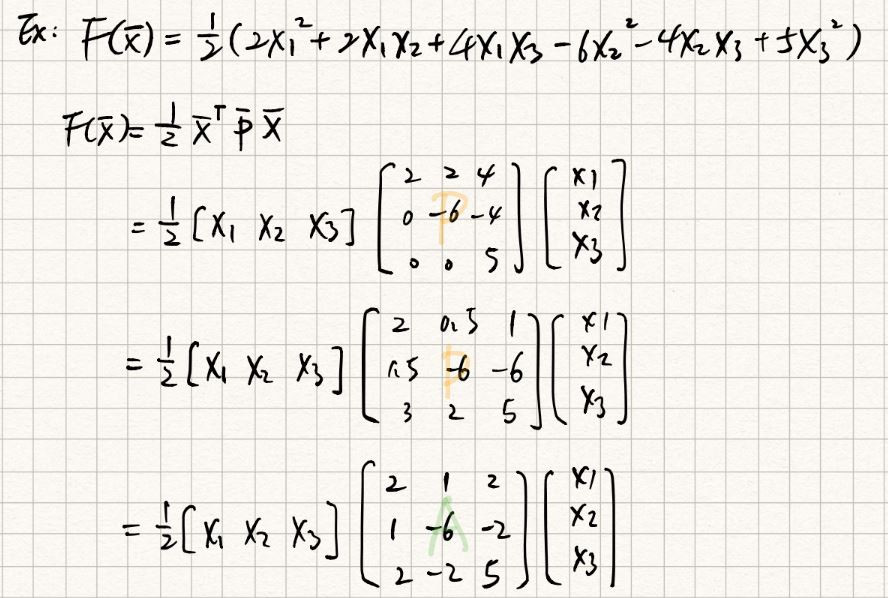 Ex: F(x̄) = 1/2 (2x₁² + 2x₁x₂ + 4x₁x₃ − 6x₂² − 4x₂x₃ + 5x₃²)
F(x̄) = 1/2 x̄ᵀ P̄ x̄
= 1/2 [x₁ x₂ x₃] [2 2 4; 0 −6 −4; 0 0 5] [x₁; x₂; x₃] P
= 1/2 [x₁ x₂ x₃] [2 0.5 1; 1.5 −6 −6; 3 2 5] [x₁; x₂; x₃] P
= 1/2 [x₁ x₂ x₃] [2 1 2; 1 −6 −2; 2 −2 5] [x₁; x₂; x₃] A